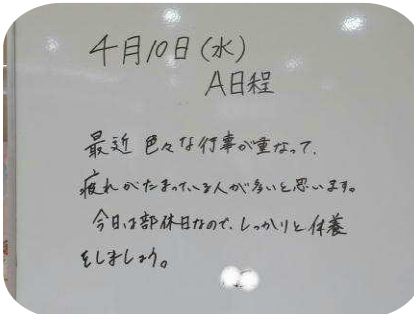 4月10日(水)
A日程
最近 色々な行事が重なって、
疲れがたまっている人が多いと思います。
今日は部休日なので、しっかりと休養
をしましょう。